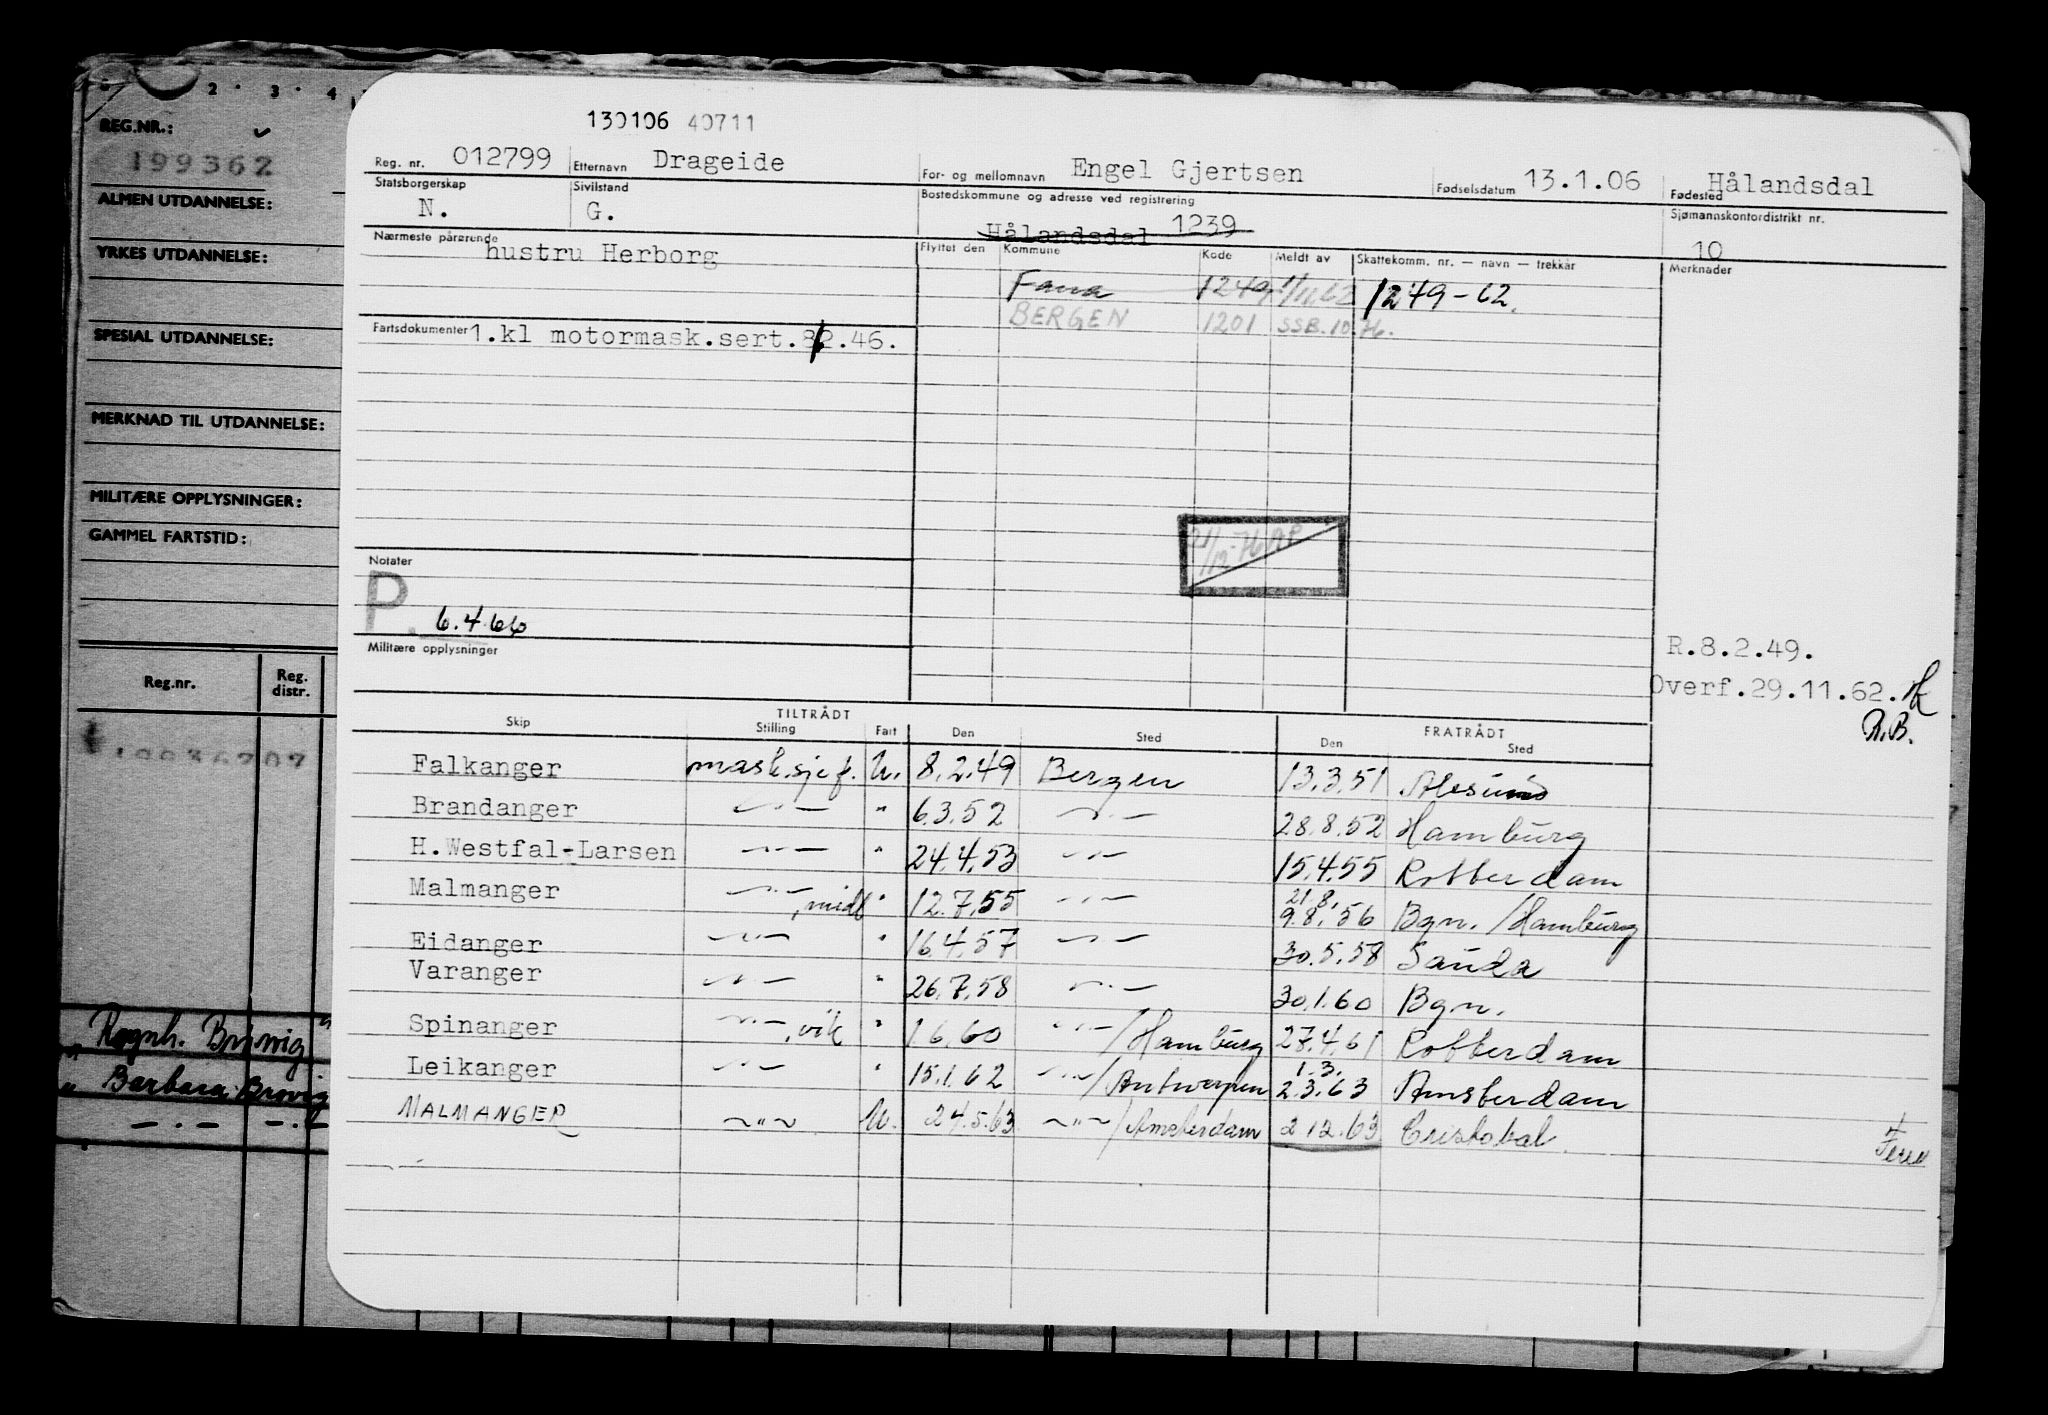 2 · 3 · 4
REG.NR.:
199362
ALMEN UTDANNELSE:
YRKES UTDANNELSE:
SPESIAL UTDANNELSE:
MERKNAD TIL UTDANNELSE:
MILITÆRE OPPLYSNINGER:
GAMMEL FARTSTID:
Reg.nr. Reg. distr.
Ragnh. Brøvig "
" Barbara Brovig
— . — — . —
130106 40711
Reg. nr. 012799 Etternavn Drageide For- og mellomnavn Engel Gjertsen Fødselsdatum 13.1.06 Fødested Hålandsdal
Statsborgerskap N. Sivilstand G. Bostedskommune og adresse ved registrering Hålandsdal 1239 Sjømannskontordistrikt nr. 10
Nærmeste pårørende hustru Herborg Flyttet den Kommune Kode Meldt av Skattekomm. nr. — navn — trekkår Merknader
Fana 1249 1/11.62 1249-62.
BERGEN 1201 SSB.10.76.
Fartsdokumenter 1.kl motormask.sert.8/2.46.
21/12-76 AP
Notater
P. 6.4.66
Militære opplysninger
R.8.2.49.
Overf.29.11.62.
R.B.
TILTRÅDT FRATRÅDT
Skip Stilling Fart Den Sted Den Sted
Falkanger mask.sjef. U. 8.2.49 Bergen 13.3.51 Ålesund
Brandanger —"— " 6.3.52 —"— 28.8.52 Hamburg
H.Westfal-Larsen —"— " 24.4.53 —"— 15.4.55 Rotterdam
Malmanger —"—, midl " 12.7.55 —"— 21.8. 9.8.'56 Bgn. / Hamburg
Eidanger —"— " 16.4.57 —"— 30.5.58 Sauda
Varanger —"— " 26.7.58 —"— 30.1.60 Bgn.
Spinanger —"—, vik " 1.6.60 —"— / Hamburg 27.4.61 Rotterdam
Leikanger —"— " 15.1.62 —"— / Antwerpen 1.3. 2.3.63 Amsterdam
MALMANGER —"— U. 24.5.63 —"— / Amsterdam 2.12.63 Cristobal